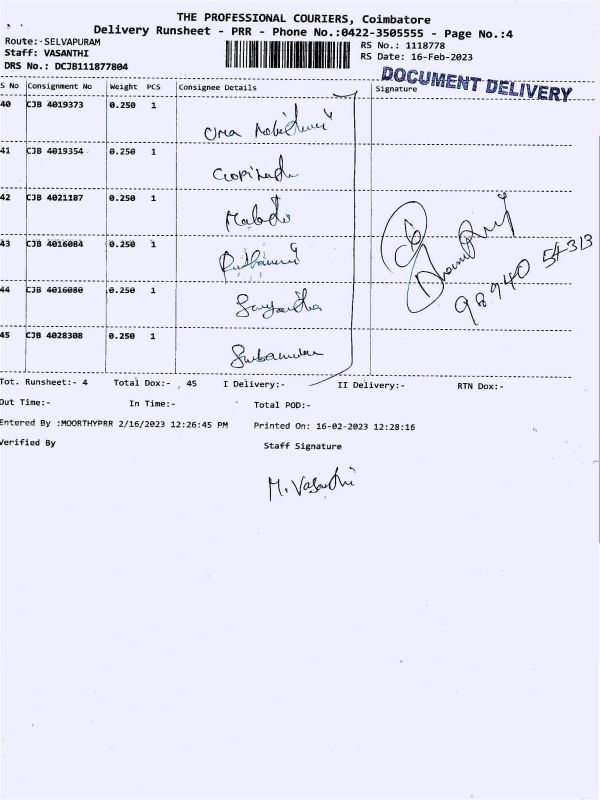 THE PROFESSIONAL COURIERS, Coimbatore
Delivery Runsheet - PRR - Phone No.:0422-3505555 - Page No.:4
Route:-SELVAPURAM
RS No.: 1118778
Staff: VASANTHI
RS Date: 16-Feb-2023
DRS No.: DCJB111877804
DOCUMENT DELIVERY
S No Consignment No Weight PCS Consignee Details Signature
40 CJB 4019373 0.250 1
41 CJB 4019354 0.250 1 Gopinath
42 CJB 4021187 0.250 1 Malathi
43 CJB 4016084 0.250 1
44 CJB 4016080 0.250 1
45 CJB 4028308 0.250 1
98940 54313
Tot. Runsheet:- 4 Total Dox:- , 45 I Delivery:- II Delivery:- RTN Dox:-
Out Time:- In Time:- Total POD:-
Entered By :MOORTHYPRR 2/16/2023 12:26:45 PM Printed On: 16-02-2023 12:28:16
Verified By Staff Signature
M. Vasanthi